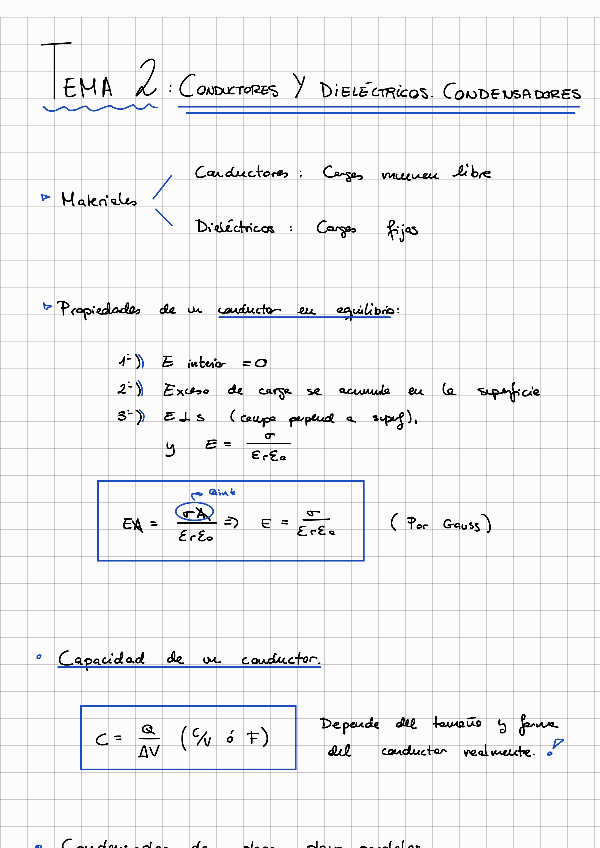 TEMA 2 : CONDUCTORES Y DIELÉCTRICOS. CONDENSADORES
Conductores : Cargas mueven libre
▷ Materiales
Dieléctricos : Cargas fijas
▷ Propiedades de un conductor en equilibrio:
1º) E interior = 0
2º) Exceso de carga se acumula en la superficie
3º) E ⊥ S (campo perpend a superf),
y E = σ / εrε0
→ Qint
EA = σA / εrε0 ⇒ E = σ / εrε0 (Por Gauss)
Capacidad de un conductor.
C = Q / ΔV (C/V ó F) Depende del tamaño y forma
del conductor realmente. !